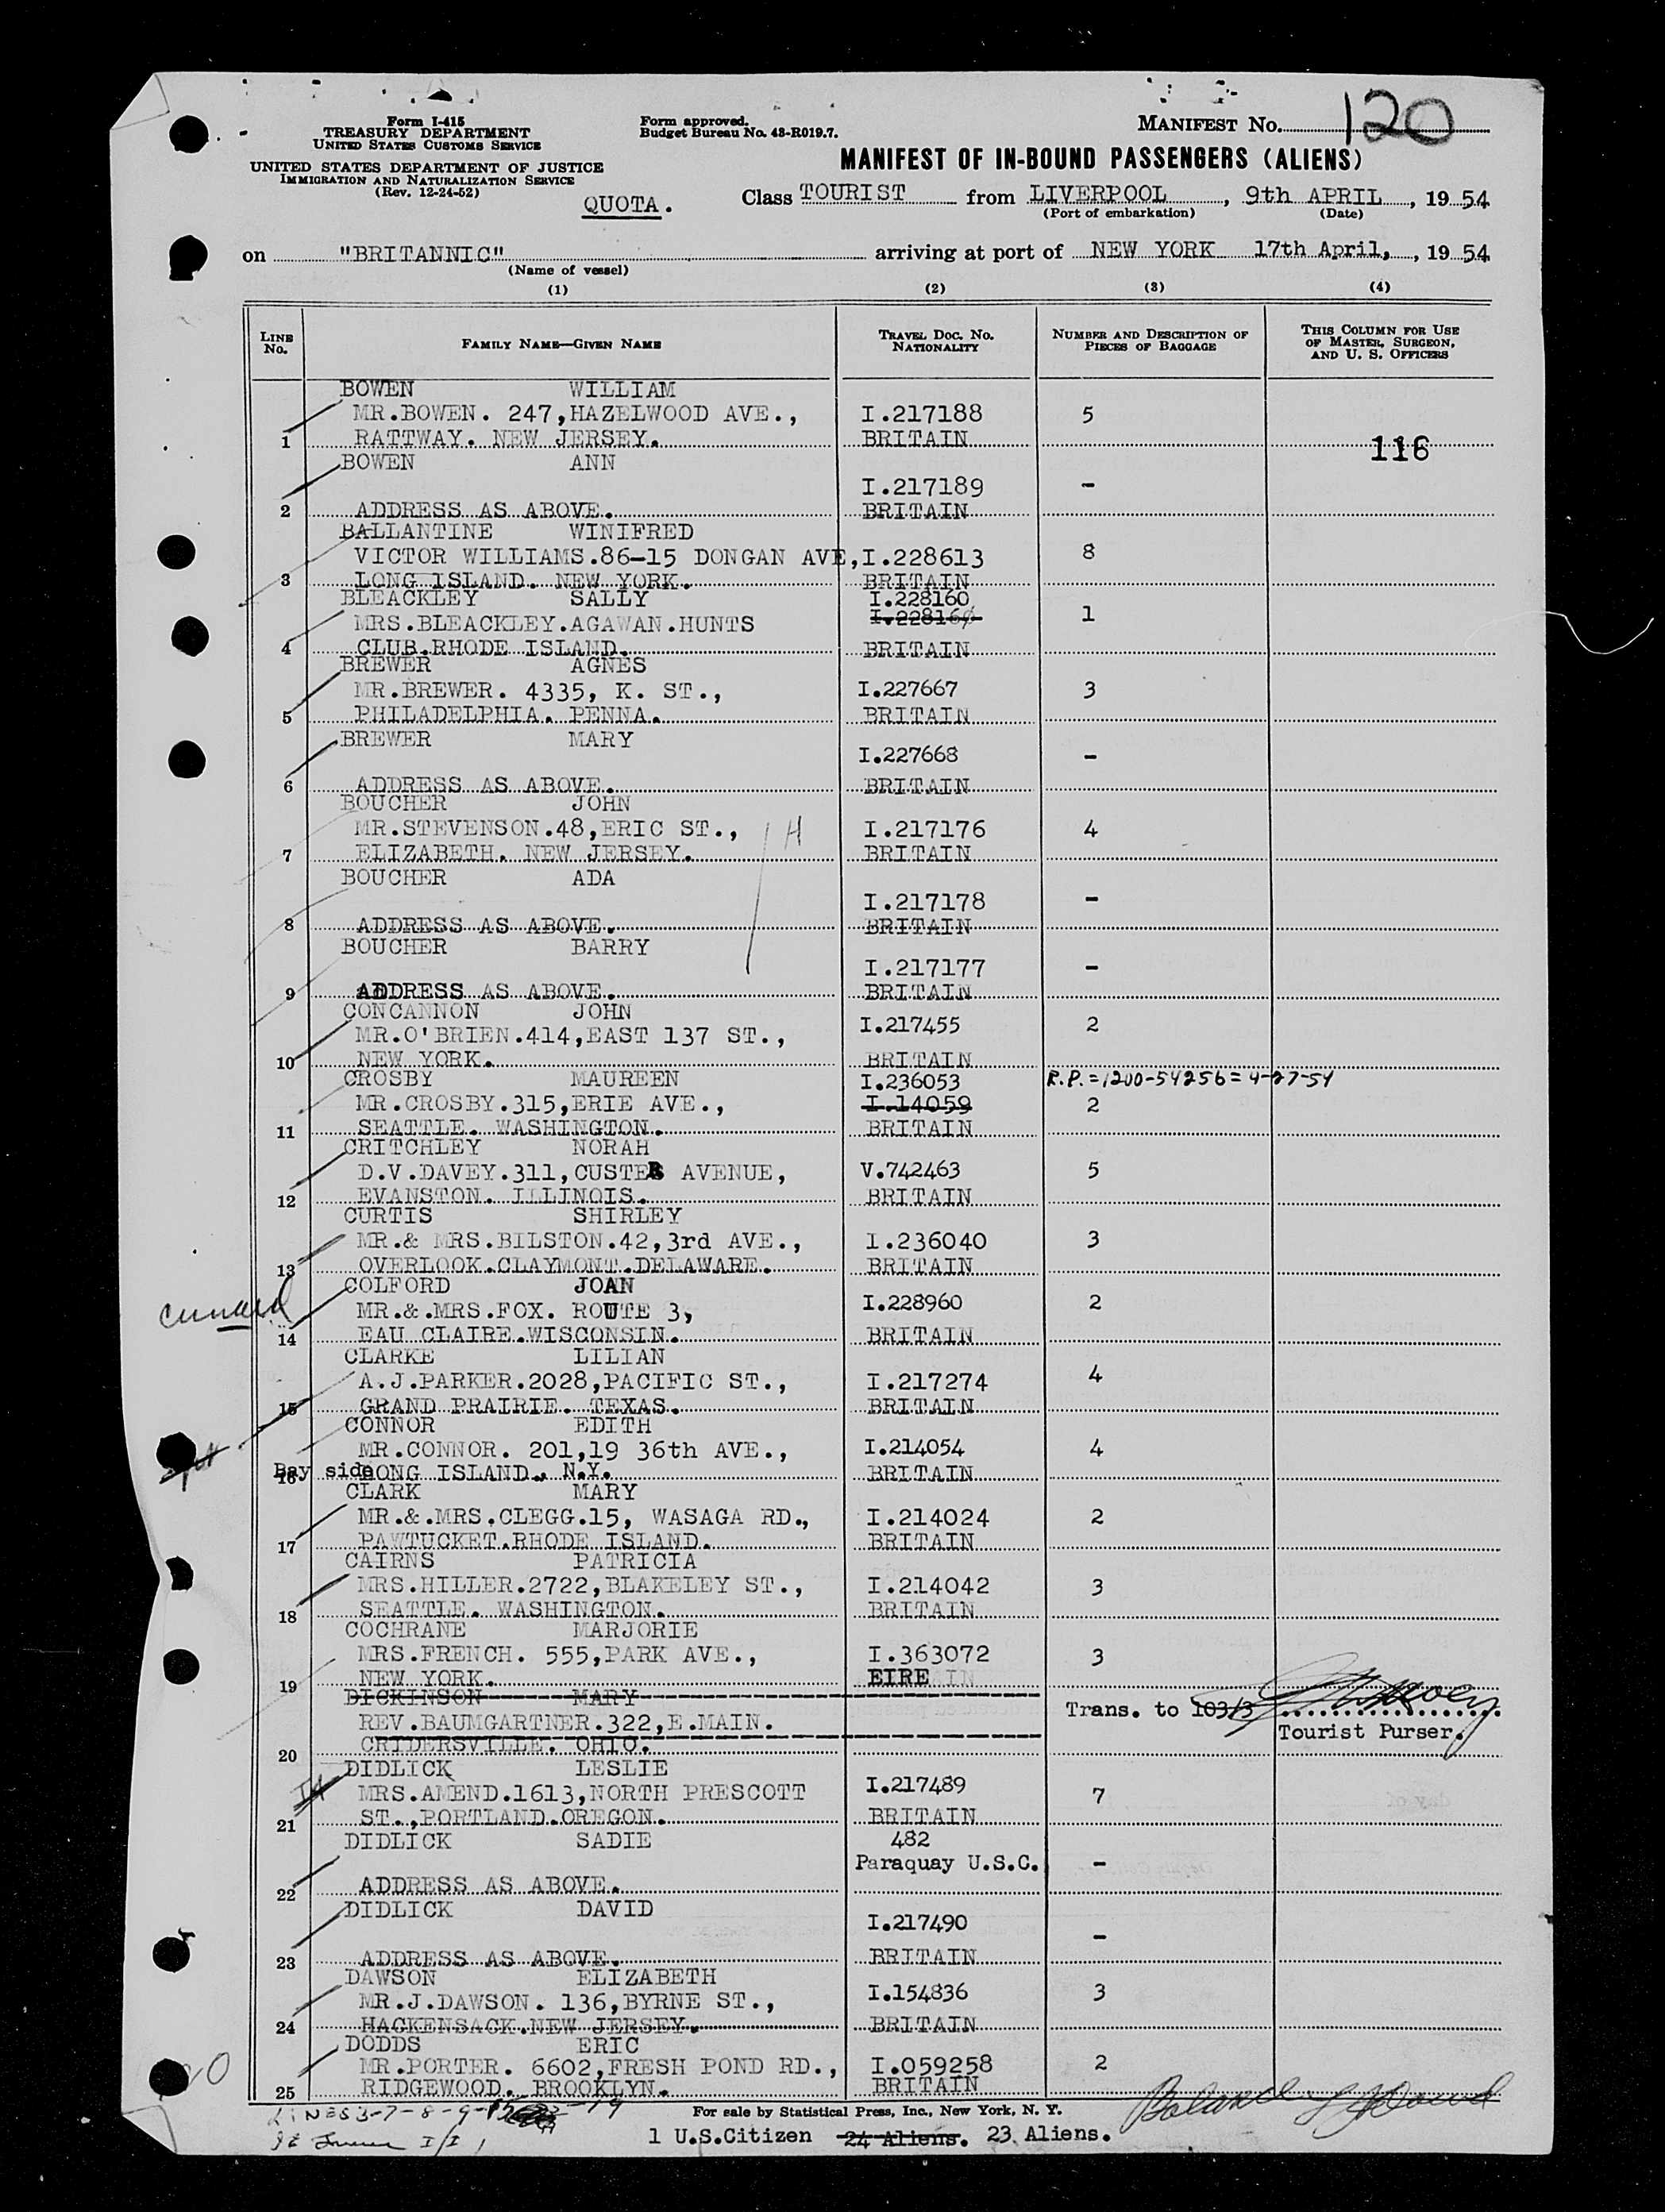 Form I-415
TREASURY DEPARTMENT
UNITED STATES CUSTOMS SERVICE
UNITED STATES DEPARTMENT OF JUSTICE
IMMIGRATION AND NATURALIZATION SERVICE
(Rev. 12-24-52)
Form approved.
Budget Bureau No. 43-R019.7.
MANIFEST No. 120
MANIFEST OF IN-BOUND PASSENGERS (ALIENS)
QUOTA. Class TOURIST from LIVERPOOL, 9th APRIL, 19 54
(Port of embarkation) (Date)
on "BRITANNIC" arriving at port of NEW YORK 17th April, , 19 54
(Name of vessel)
(1) (2) (3) (4)
LINE No. FAMILY NAME—GIVEN NAME TRAVEL DOC. No. NATIONALITY NUMBER AND DESCRIPTION OF PIECES OF BAGGAGE THIS COLUMN FOR USE OF MASTER, SURGEON, AND U. S. OFFICERS
BOWEN WILLIAM
MR.BOWEN. 247,HAZELWOOD AVE., I.217188 5
1 RATTWAY. NEW JERSEY. BRITAIN 116
BOWEN ANN
I.217189 -
2 ADDRESS AS ABOVE. BRITAIN
BALLANTINE WINIFRED
VICTOR WILLIAMS.86-15 DONGAN AVE, I.228613 8
3 LONG ISLAND. NEW YORK. BRITAIN
BLEACKLEY SALLY I.228160
MRS.BLEACKLEY.AGAWAN.HUNTS I.22816 1
4 CLUB.RHODE ISLAND. BRITAIN
BREWER AGNES
MR.BREWER. 4335, K. ST., I.227667 3
5 PHILADELPHIA. PENNA. BRITAIN
BREWER MARY
I.227668 -
6 ADDRESS AS ABOVE. BRITAIN
BOUCHER JOHN
MR.STEVENSON.48,ERIC ST., H I.217176 4
7 ELIZABETH. NEW JERSEY. BRITAIN
BOUCHER ADA
I.217178 -
8 ADDRESS AS ABOVE. BRITAIN
BOUCHER BARRY
I.217177 -
9 ADDRESS AS ABOVE. BRITAIN
CONCANNON JOHN
MR.O'BRIEN.414,EAST 137 ST., I.217455 2
10 NEW YORK. BRITAIN
CROSBY MAUREEN I.236053 R.P.=1200-54256=4-27-54
MR.CROSBY.315,ERIE AVE., I.14059 2
11 SEATTLE. WASHINGTON. BRITAIN
CRITCHLEY NORAH
D.V.DAVEY.311,CUSTER AVENUE, V.742463 5
12 EVANSTON. ILLINOIS. BRITAIN
CURTIS SHIRLEY
MR.& MRS.BILSTON.42,3rd AVE., I.236040 3
13 OVERLOOK.CLAYMONT.DELAWARE. BRITAIN
COLFORD JOAN
cunard MR.&.MRS.FOX. ROUTE 3, I.228960 2
14 EAU CLAIRE.WISCONSIN. BRITAIN
CLARKE LILIAN
A.J.PARKER.2028,PACIFIC ST., I.217274 4
15 GRAND PRAIRIE. TEXAS. BRITAIN
CONNOR EDITH
MR.CONNOR. 201,19 36th AVE., I.214054 4
16 Bay side LONG ISLAND. N.Y. BRITAIN
CLARK MARY
MR.&.MRS.CLEGG.15, WASAGA RD., I.214024 2
17 PAWTUCKET.RHODE ISLAND. BRITAIN
CAIRNS PATRICIA
MRS.HILLER.2722,BLAKELEY ST., I.214042 3
18 SEATTLE. WASHINGTON. BRITAIN
COCHRANE MARJORIE
MRS.FRENCH. 555,PARK AVE., I.363072 3
19 NEW YORK. EIRE
DICKINSON MARY
REV.BAUMGARTNER.322,E.MAIN. Trans. to 103/3
20 CRIDERSVILLE. OHIO. Tourist Purser.
DIDLICK LESLIE
MRS.AMEND.1613,NORTH PRESCOTT I.217489 7
21 ST.,PORTLAND.OREGON. BRITAIN
DIDLICK SADIE 482
Paraquay U.S.C. -
22 ADDRESS AS ABOVE.
DIDLICK DAVID
I.217490 -
23 ADDRESS AS ABOVE. BRITAIN
DAWSON ELIZABETH
MR.J.DAWSON. 136,BYRNE ST., I.154836 3
24 HACKENSACK.NEW JERSEY. BRITAIN
DODDS ERIC
MR.PORTER. 6602,FRESH POND RD., I.059258 2
25 RIDGEWOOD. BROOKLYN. BRITAIN
LINES 3-7-8-9-15 -19
For sale by Statistical Press, Inc., New York, N. Y.
1 U.S.Citizen 24 Aliens. 23 Aliens.